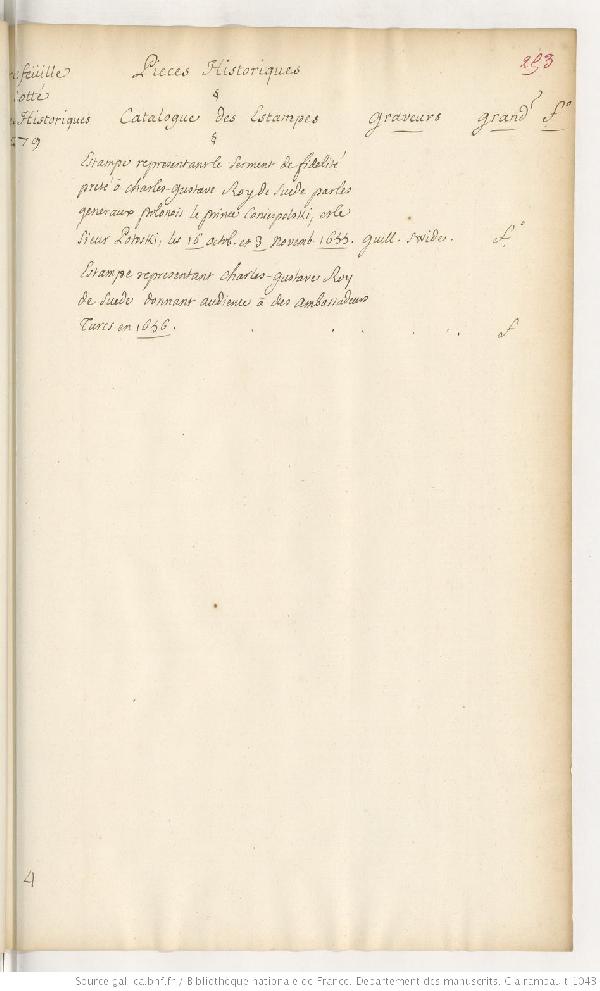 293
feüille Pieces Historiques
cotté §
Historiques Catalogue des Estampes graveurs grandr fo
279 §
Estampe representant le serment de fidelité
preté à charles-gustave Roy de suede par les
generaux polonois le prince Coniecpolski, et le
sieur Potoski, les 16 octrb. et 3 novemb 1655. guill. swide. fo
Estampe representant charles-gustave Roy
de suede donnant audience à des ambassadeurs
Turcs en 1656. . . . . . f
4
Source gallica.bnf.fr / Bibliothèque nationale de France. Département des manuscrits. Clairambault 1048